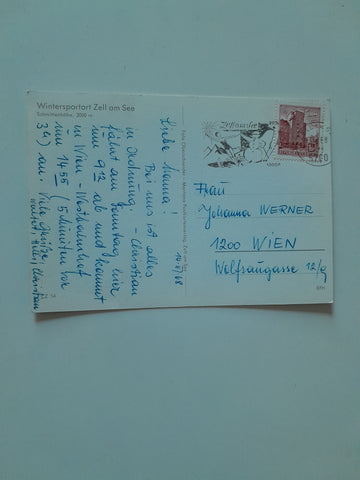 Wintersportort Zell am See
Schmittenhöhe, 2000 m
14.2./68
Liebe Mama!
Bei uns ist alles
in Ordnung. - Christian
fährt am Sonntag hier
um 9 12 ab und kommt
in Wien - Westbahnhof
um 14 55 (5 Minuten vor
3h) an. Viele Grüße
Christian
Zell am See
Frau
Johanna WERNER
1200 WIEN
Wolfsaugasse 12/9